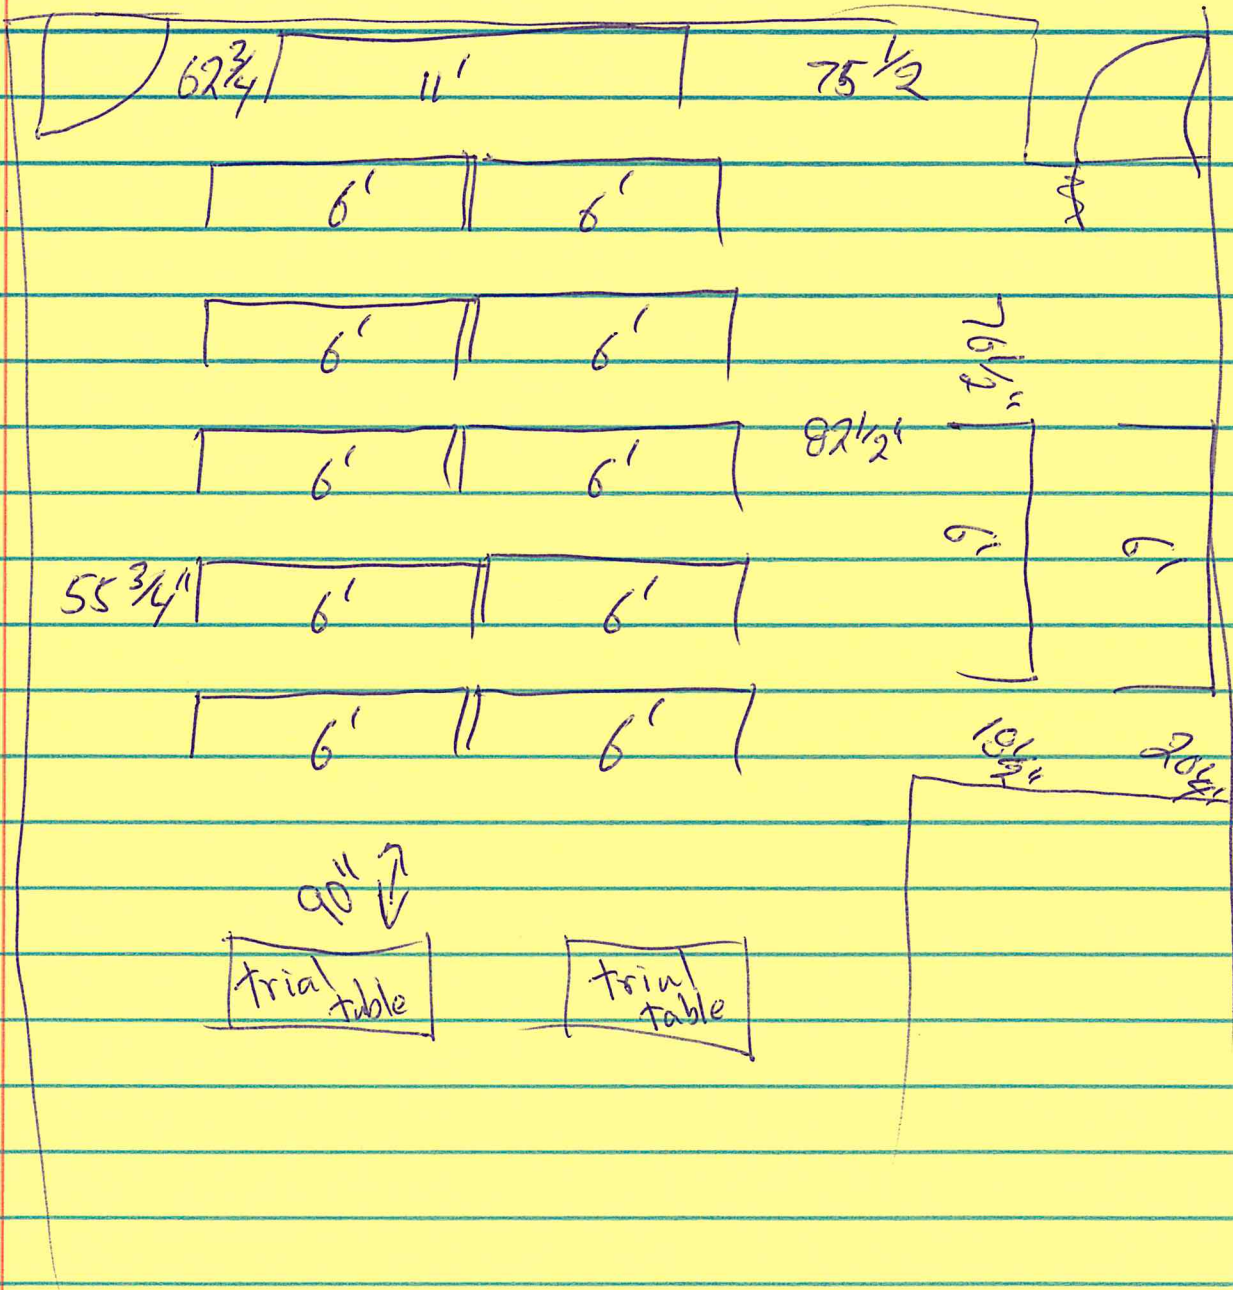 62 3/4 11' 75 1/2
6' 6'
6' 6'
76 1/2"
6' 6' 82 1/2"
6' 6'
55 3/4" 6' 6'
6' 6'
90"
trial table trial table